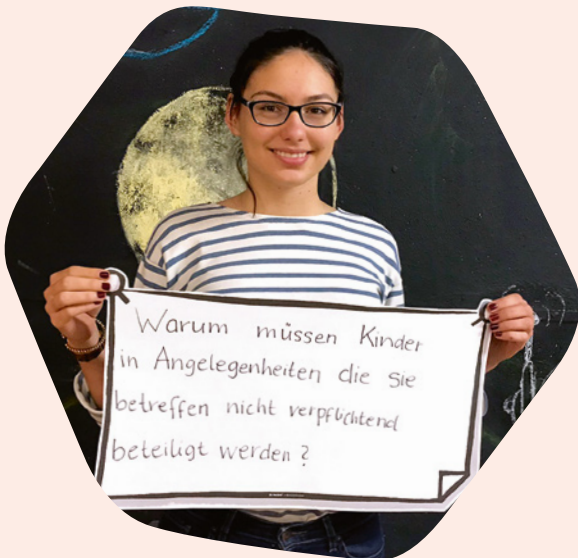 Warum müssen Kinder
in Angelegenheiten die sie
betreffen nicht verpflichtend
beteiligt werden?